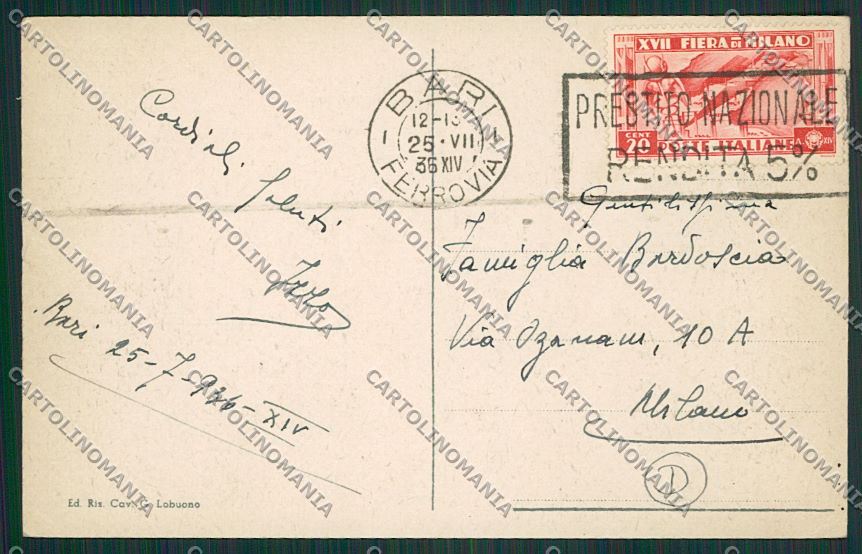 Cordiali
Saluti
Bari 25-7-936-XIV
Ed. Ris. Cav. G. Lobuono
BARI
12-13
25·VII
36 XIV
FERROVIA
XVII FIERA DI MILANO
CENT 20 POSTE ITALIANE XIV
PRESTITO NAZIONALE
RENDITA 5%
Gentilissima
Famiglia Bardoscia
Via Ozanam, 10 A
Milano
D
CARTOLINOMANIA